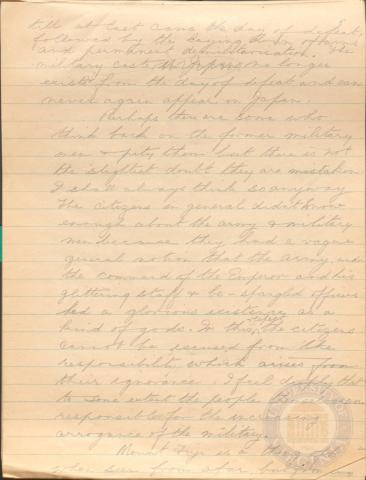 till at last came the day of defeat,
followed by the laying down of arms
and permanent demilitarisation. The
military caste in Japan no longer
exists from the day of defeat and can
never again appear in Japan.
Perhaps there are some who
think back on the former military
men & pity them but there is not
the slightest doubt they are mistaken
I shall always think so anyway
The citizens in general didn't know
enough about the army & military
men because they had a vague
general notion that the Army, under
the command of the Emperor and his
glittering staff & be-spangled officers
led a glorious existence as a
kind of gods. In this, the citizens
cannot be excused from the
responsibility which arises from
their ignorance. I feel that
to some extent the people themselves are
responsible for the increasing
arrogance of the military.
Mount Fuji is a thing of
when seen from afar, but